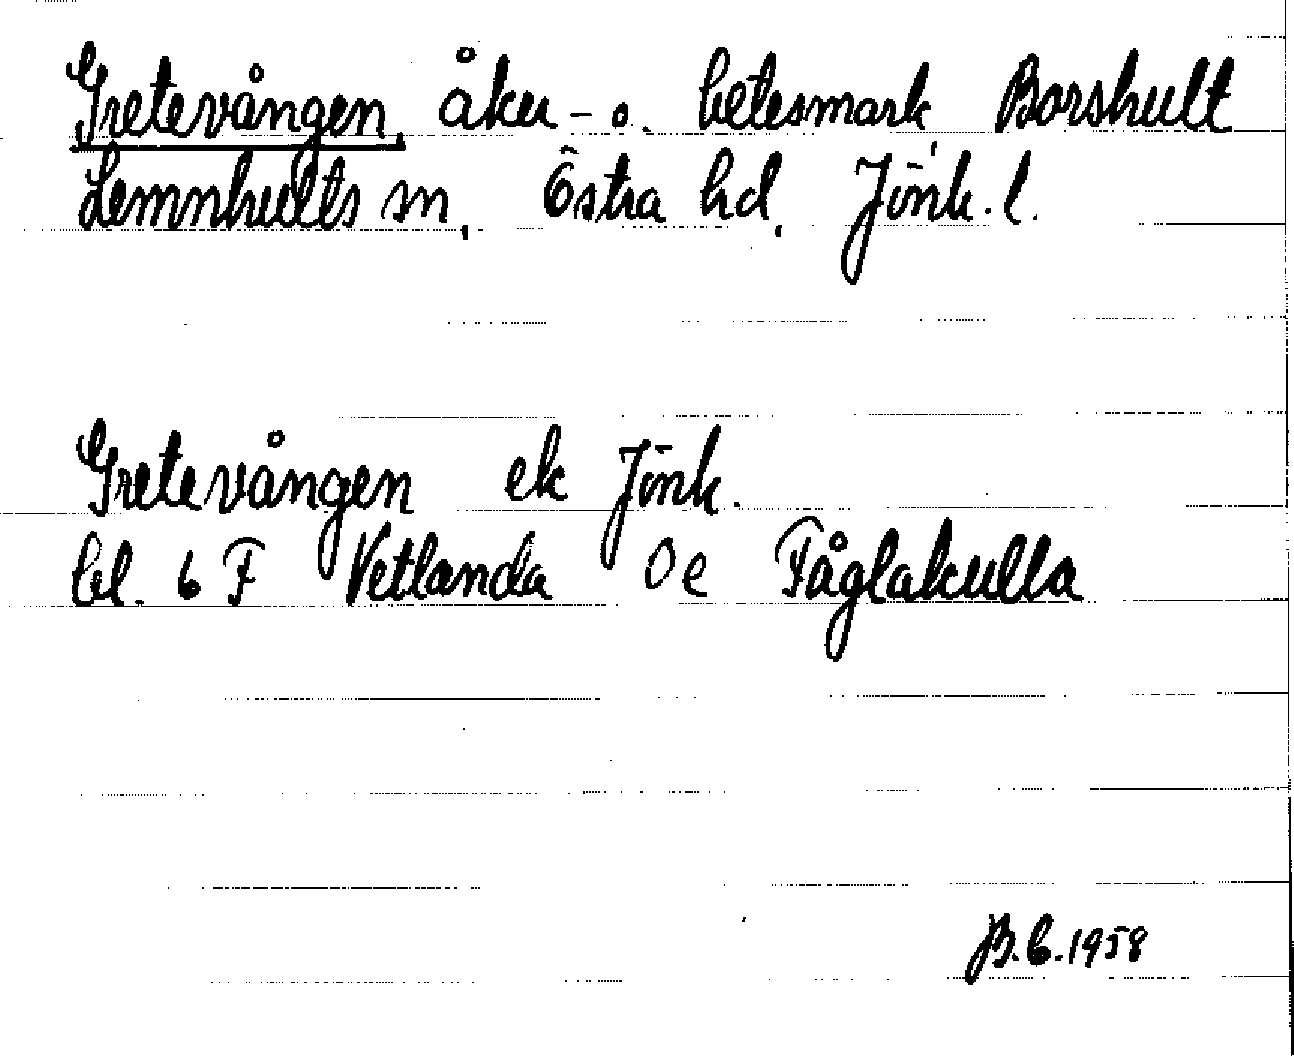 Gretevången, åker- o. betesmark Borshult
Lemnhults sn, Östra hd, Jönk. l.
Gretevången ek Jönk.
bl. 6 F Vetlanda 0 e Fåglakulla
B.C. 1958